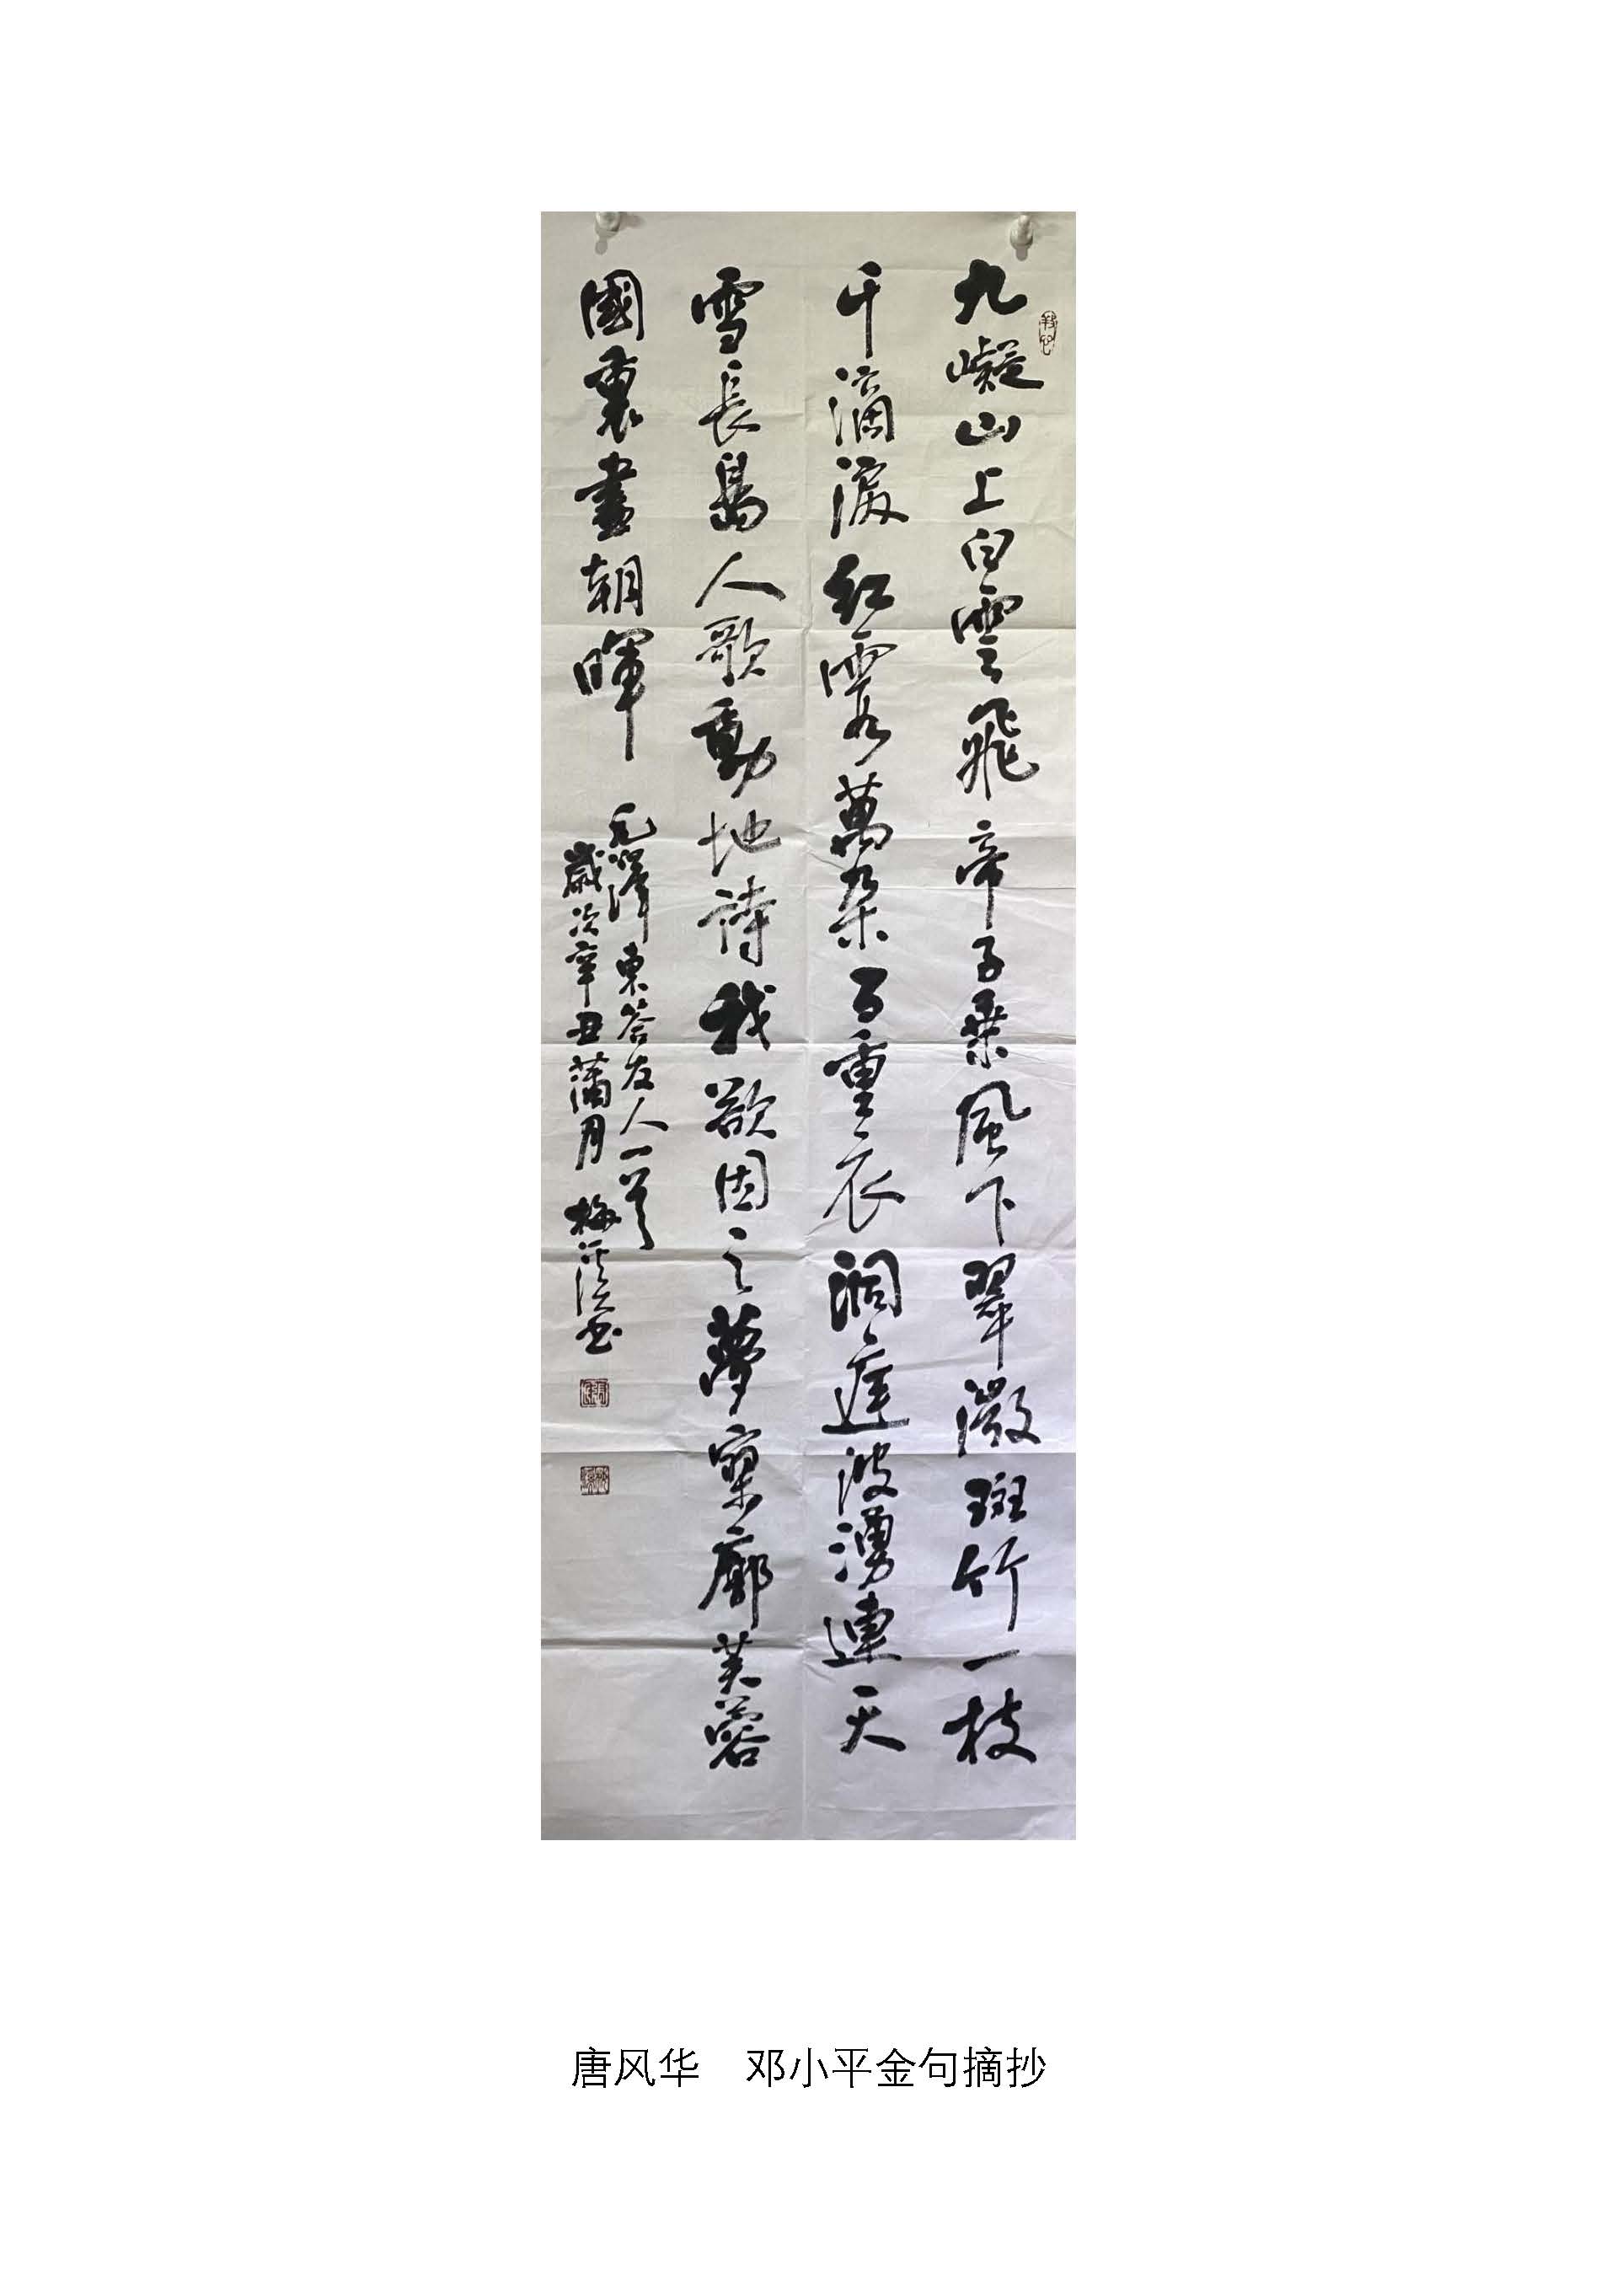 九嶷山上白雲飛帝子乘風下翠微斑竹一枝
千滴淚紅霞萬朵百重衣洞庭波湧連天
雪長島人歌動地詩我欲因之夢寥廓芙蓉
國裏盡朝暉
毛澤東答友人一首
歲次辛丑蒲月 梅溪书
唐风华 邓小平金句摘抄